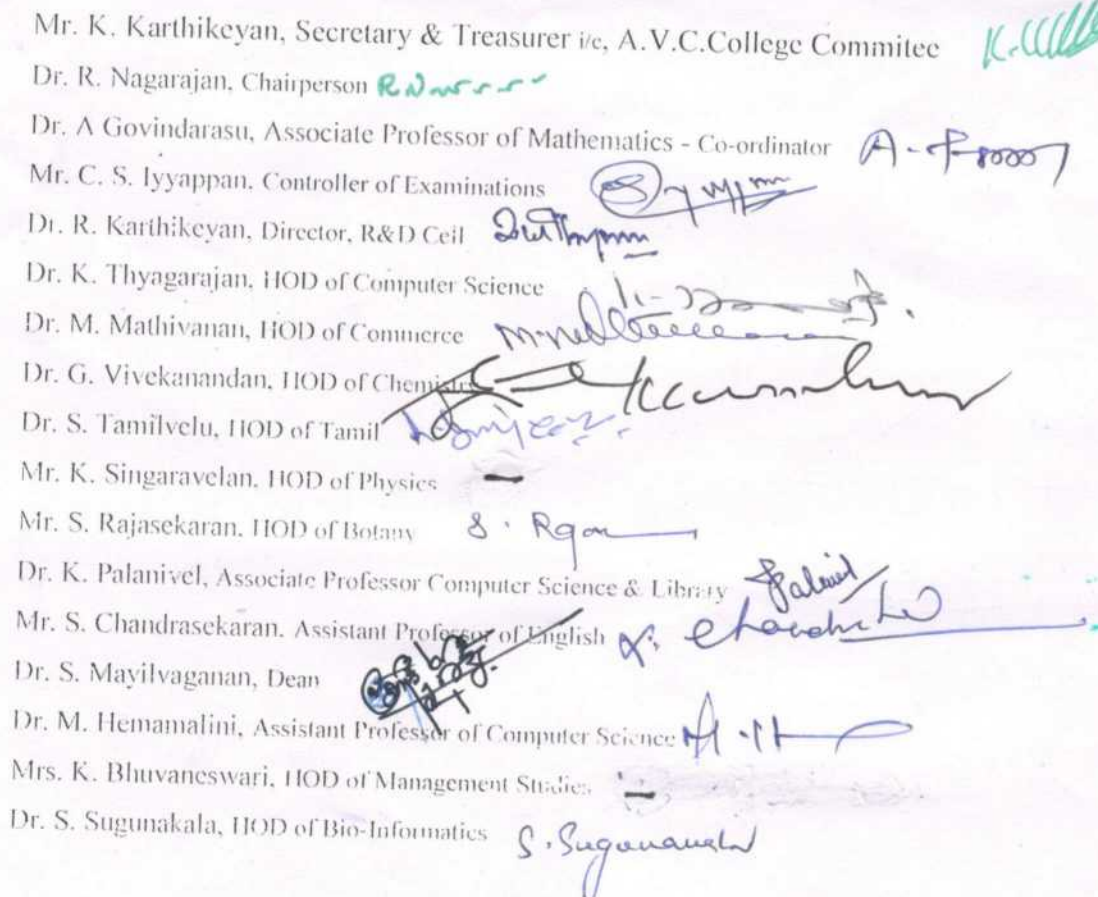 Mr. K. Karthikeyan, Secretary & Treasurer i/c, A.V.C.College Commitee
Dr. R. Nagarajan, Chairperson
Dr. A Govindarasu, Associate Professor of Mathematics - Co-ordinator
Mr. C. S. Iyyappan, Controller of Examinations
Dr. R. Karthikeyan, Director, R&D Cell
Dr. K. Thyagarajan, HOD of Computer Science
Dr. M. Mathivanan, HOD of Commerce
Dr. G. Vivekanandan, HOD of Chemistry
Dr. S. Tamilvelu, HOD of Tamil
Mr. K. Singaravelan, HOD of Physics
Mr. S. Rajasekaran, HOD of Botany
Dr. K. Palanivel, Associate Professor Computer Science & Library
Mr. S. Chandrasekaran, Assistant Professor of English
Dr. S. Mayilvaganan, Dean
Dr. M. Hemamalini, Assistant Professor of Computer Science
Mrs. K. Bhuvaneswari, HOD of Management Studies
Dr. S. Sugunakala, HOD of Bio-Informatics